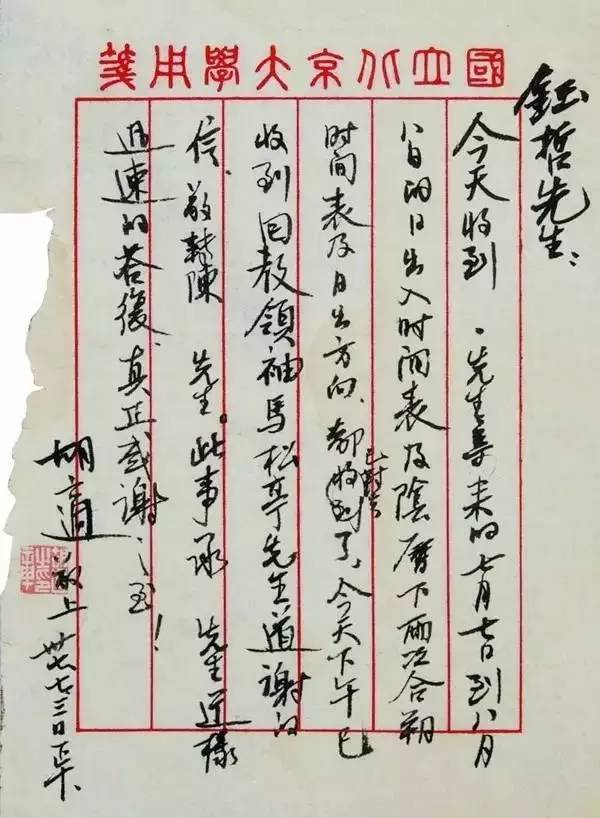 國立北京大學用箋
鈺哲先生：
今天收到 先生寄来的七月七日到八月
八日的日出入时间表及陰曆下兩次合朔
时间表及日出方向、都收到了。今天下午已
收到回教領袖馬松亭先生道謝的
信、敬轉陳 先生。此事承 先生這樣
迅速的答復、真正感謝之至！
胡適敬上 卅七、七、三日下午